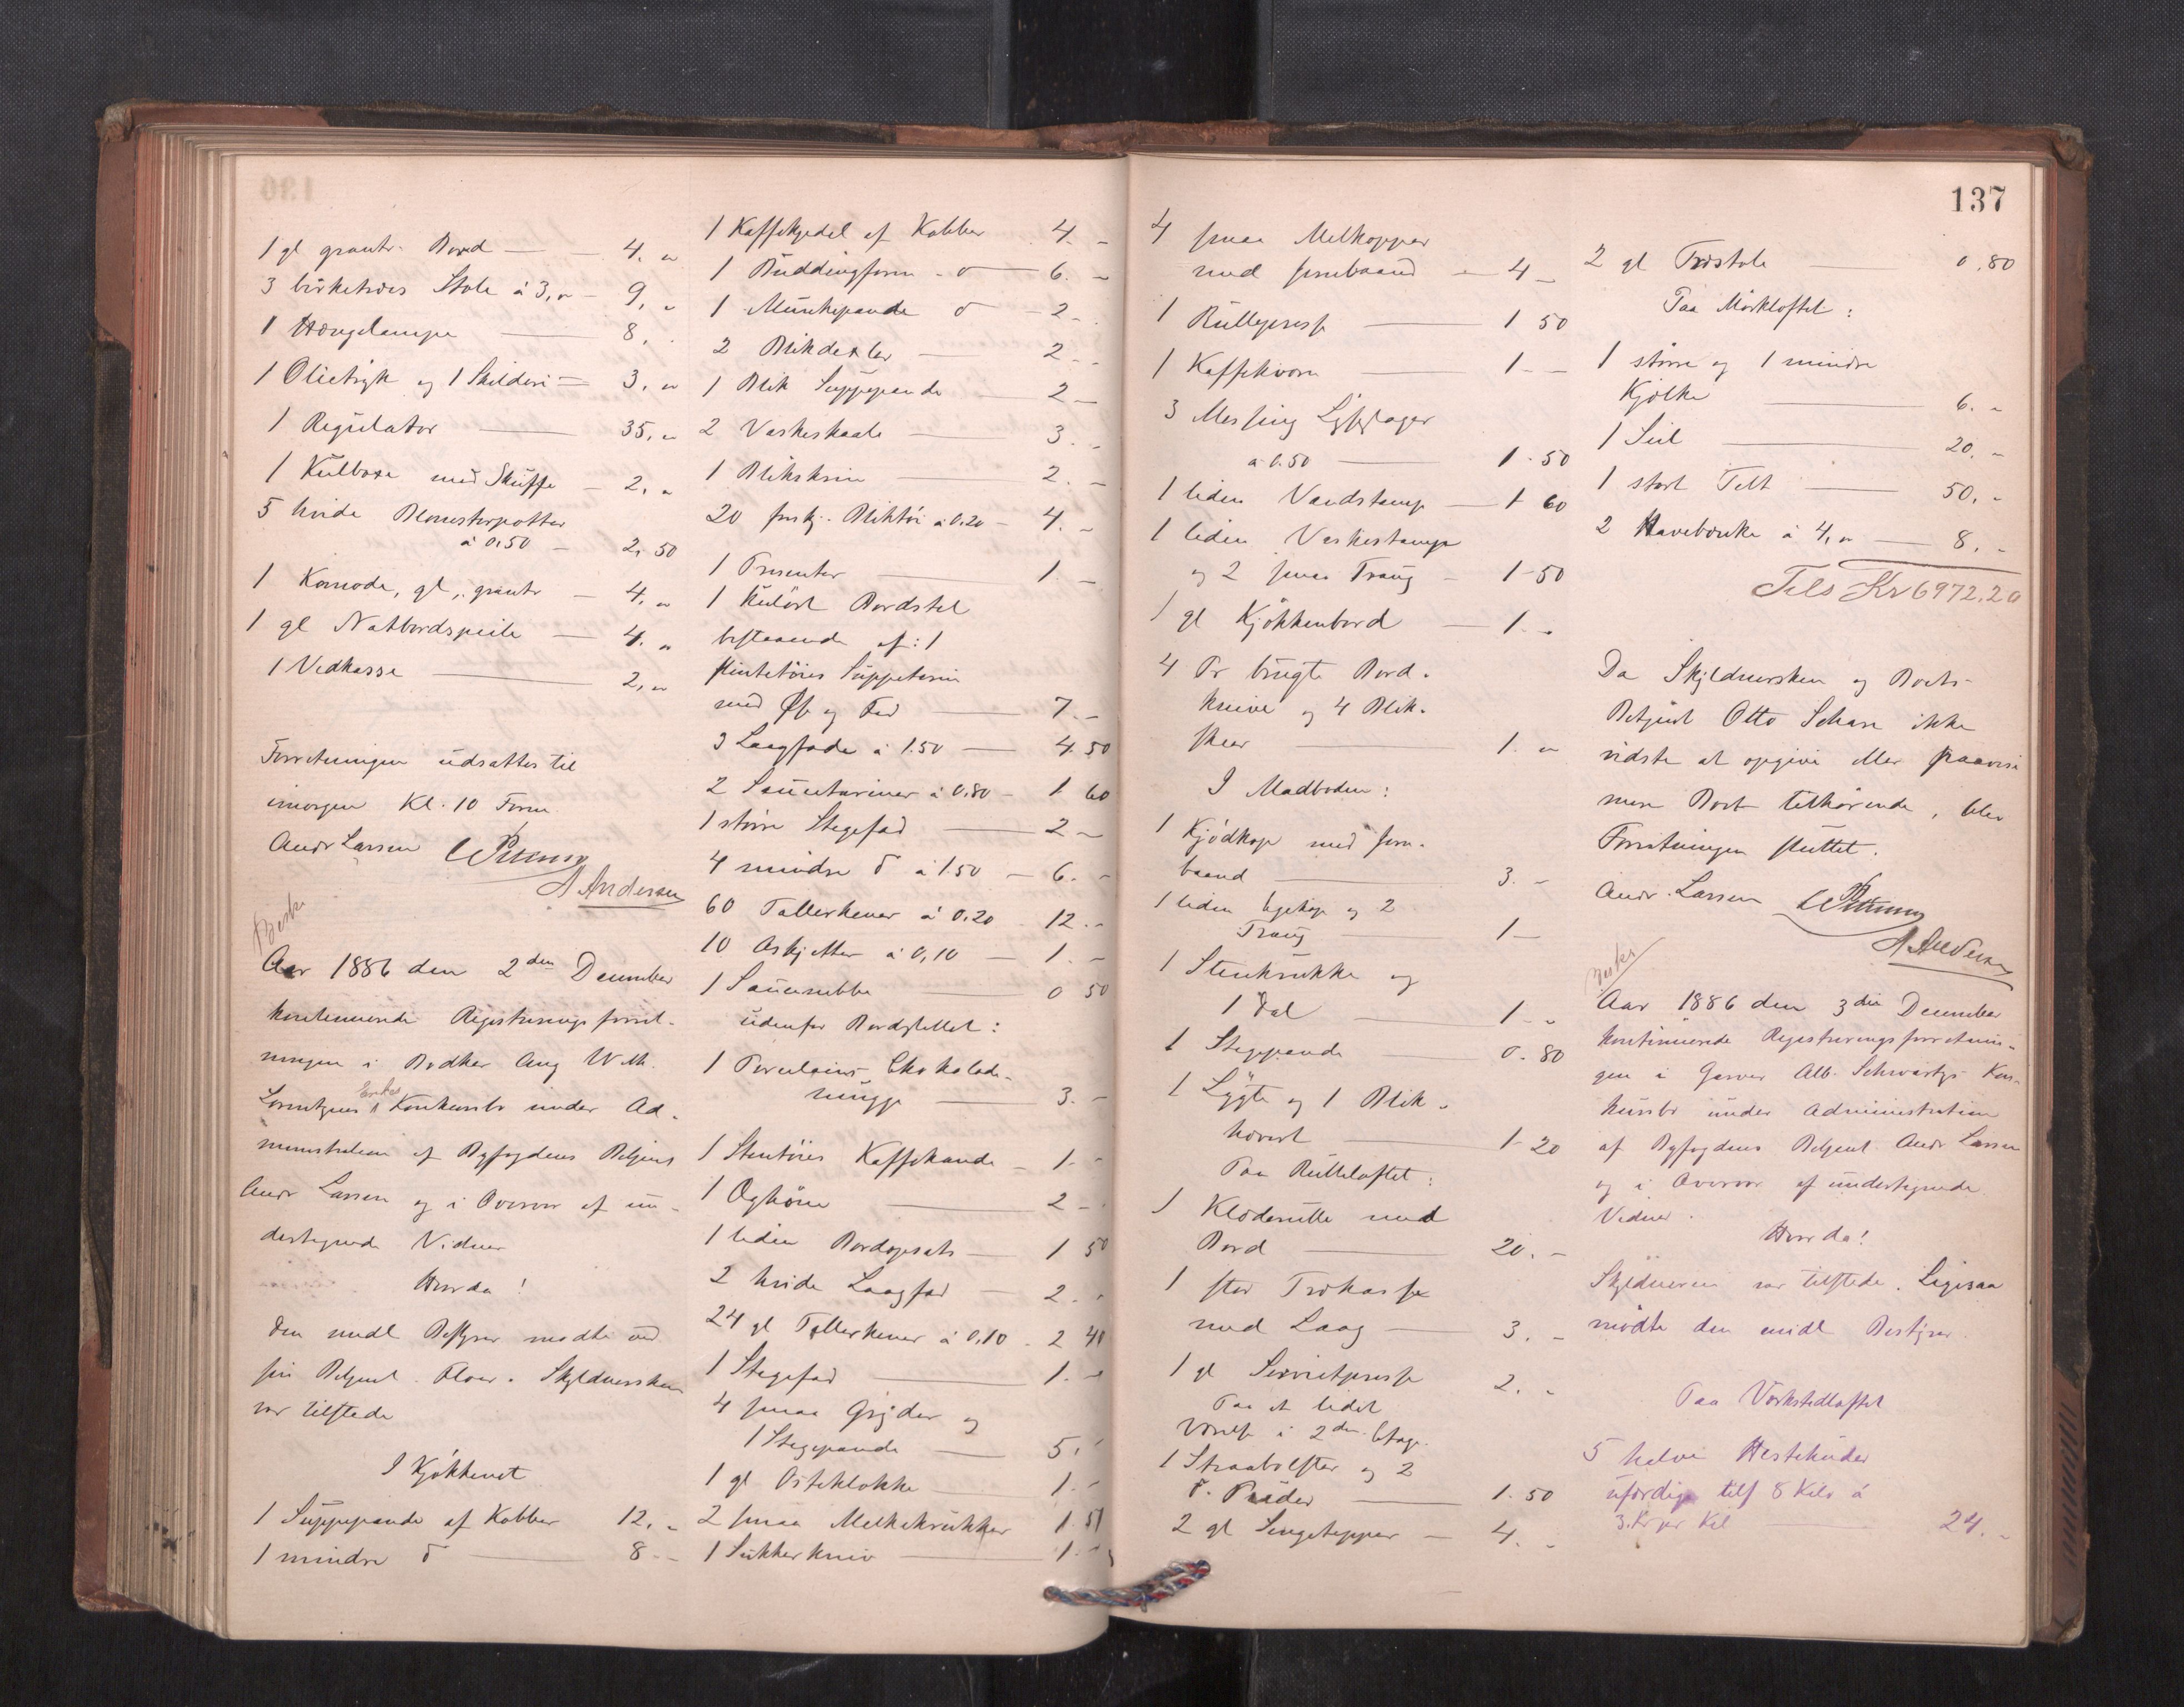 1 gl grantr. Bord — 4, "
3 birketræs Stole à 3, " — 9, "
1 Hængelampe — 8, "
1 Olietryk og 1 Skilderi — 3, "
1 Regulator — 35, "
1 Kulboxe med Skuffe — 2, "
5 hvide Blomsterpotter
à 0.50 — 2, 50
1 Komode, gl, grantr — 4, "
1 gl Natbordspeile — 4, "
1 Vedkasse — 2, "
Forretningen udsattes til
imorgen Kl. 10 Form.
Andr Larsen
A Andersen
Beskr
Aar 1886 den 2den December
kontinuerede Registreringsforret-
ningen i Bødker Aug Wilh.
Lorentzens Enkes Konkursbo under Ad-
ministration af Byfogdens Betjent
Andr Larsen og i Overvær af un-
dertegnede Vidner
Hvorda!
Den midl Bestyrer mødte ved
sin Betjent. Skyldnersken
var tilstede
I Kjøkkenet
1 Suppepande af Kobber 12, "
1 mindre do — 8 - "
1 Kaffekjedel af Kobber 4. -
1 Buddingform - do — 6. -
1 Munkepande do — 2 -
2 Blikdesler — 2 - -
1 Blik Suppepande — 2 -
2 Vaskeskaale — 3. -
1 Blikskrin — 2. -
20 forskj. Bliktøi à 0.20 — 4. -
1 Presenter — 1 -
1 kulørt Bordstel
bestaaende af: 1
flintetøies Suppeterin
med Øse og Fad — 7. -
3 Laagfade à 1.50 — 4.50
2 Sauceteriner à 0.80 — 1 60
1 større Stegefad — 2 -
4 mindre do à 1.50 — 6. -
60 Tallerkener à 0.20 12. -
10 Askjetter à 0,10 — 1. -
1 Saucenebbe — 0 50
udenfor Bordstellet:
1 Porcelains Chokolade-
mugge — 3. -
1 Stentøies Kaffekande — 1. -
1 Øghøne — 2 -
1 liden Bordopsats — 1 50
2 hvide Laagfad — 2. -
24 gl Tallerkener à 0,10 - 2 40
1 Stegefad — 1. -
4 smaa Gryder og
1 Stegepande — 5. -
1 gl Osteklokke — 1. -
2 smaa Melkekrukker 1.50
1 Sukkerkniv — 1. -
137
4 smaa Melkopper
med Jernbaand — 4 -
1 Rullepresse — 1 50
1 Kaffekværn — 1 - -
3 Messing Lysestager
à 0.50 — 1 - 50
1 liden Vandstamp — 1 60
1 liden Vaskestamp
og 2 smaa Traug — 1 - 50
1 gl Kjøkkenbord — 1 - "
4 Pr brugte Bord-
knive og 4 Blik-
skeer — 1. "
I Madboden:
1 Kjødkop med Jern-
baand — 3. -
1 liden og 2
Traug — 1 -
1 Stenkrukke og
1 Dal — 1 - "
1 Stegpande — 0. 80
1 Lygte og 1 Blik-
— 1 - 20
Paa Rulleloftet:
1 Klæderulle med
Bord — 20. -
1 stor Trækasse
med Laag — 3. -
1 gl Servietpresse 2. -
Paa et lidet
Værelse i 2den Etage.
1 Straabolster og 2
do. Puder — 1. 50
2 gl Sengetepper — 4. -
2 gl Træstole — 0.80
Paa Mørkloftet:
1 større og 1 mindre
Kjelke — 6. "
1 Seil — 20. -
1 stort Telt — 50. -
2 Havebænke à 4, " — 8. -
Tils Kr 6972.20
Da Skyldnersken og Boets
Betjent Otto Schare ikke
vidste at opgive eller paavise
mere Boet tilhørende, blev
Forretningen sluttet.
Andr. Larsen
A Andersen
Beskr
Aar 1886 den 3die December
kontinuerede Registreringsforretnin-
gen i Garver Alb. Schwartz's Kon-
kursbo under Administration
af Byfogdens Betjent Andr Larsen
og i Overvær af undertegnede
Vidner.
Hvorda!
Skyldneren var tilstede. Ligesaa
mødte den midl Bestyrer.
Paa Værkstedloftet
5 halve Hestehuder
ufærdige tils 8 Kilo à
3. Kr pr Kil — 24. -